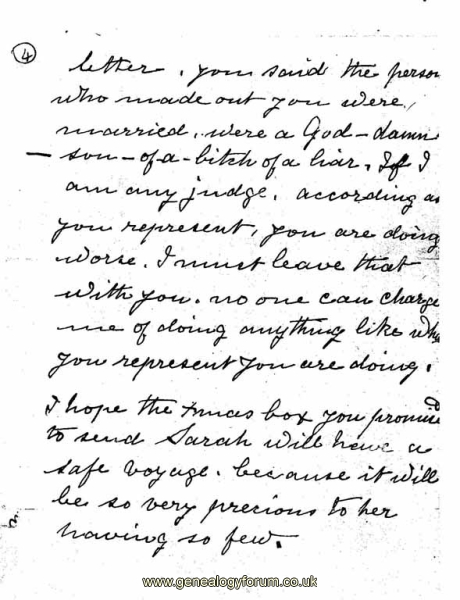 4
letter, you said the person
who made out you were,
married, were a God-damn
- son-of-a-bitch of a liar. If I
am any judge, according as
you represent, you are doing
worse. I must leave that
with you. no one can charge
me of doing anything like wh
you represent you are doing.
I hope the Xmas box you promised
to send Sarah will have a
safe voyage. because it will
be so very precious to her
having so few.
www.genealogyforum.co.uk